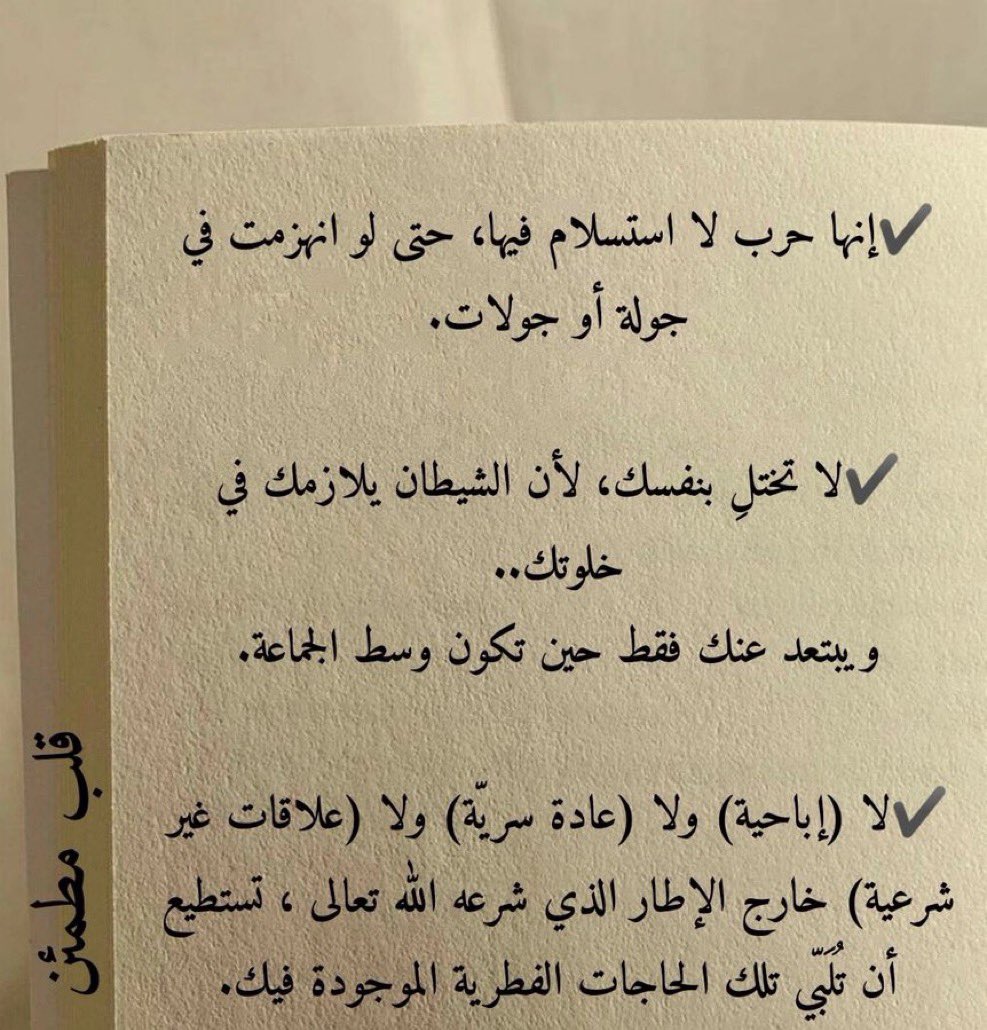 ✔إنها حرب لا استسلام فيها، حتى لو انهزمت في
جولة أو جولات.
✔لا تختلِ بنفسك، لأن الشيطان يلازمك في
خلوتك..
ويبتعد عنك فقط حين تكون وسط الجماعة.
✔لا (إباحية) ولا (عادة سريّة) ولا (علاقات غير
شرعية) خارج الإطار الذي شرعه الله تعالى ، تستطيع
أن تُلَبّي تلك الحاجات الفطرية الموجودة فيك.
قلب مطمئن